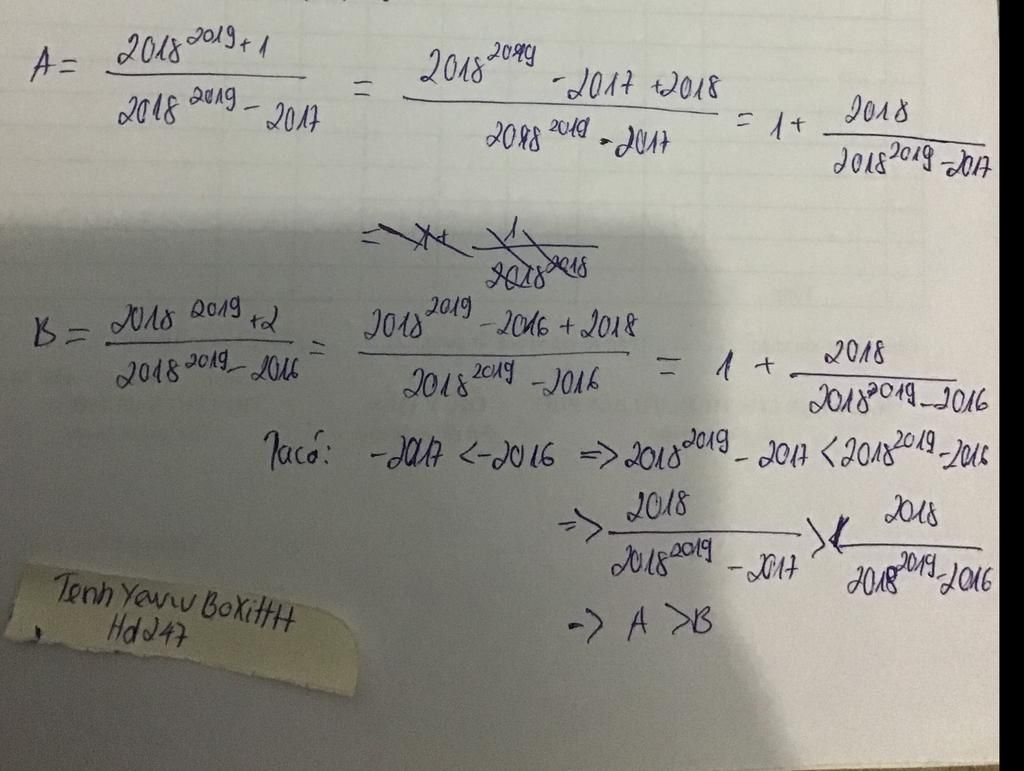 A = (2018^2019 + 1)/(2018^2019 - 2017) = (2018^2019 - 2017 + 2018)/(2018^2019 - 2017) = 1 + 2018/(2018^2019 - 2017)
= 1 + 1/2018^2018
B = (2018^2019 + 2)/(2018^2019 - 2016) = (2018^2019 - 2016 + 2018)/(2018^2019 - 2016) = 1 + 2018/(2018^2019 - 2016)
Ta có: -2017 < -2016 => 2018^2019 - 2017 < 2018^2019 - 2016
=> 2018/(2018^2019 - 2017) > 2018/(2018^2019 - 2016)
=> A > B
Hd247